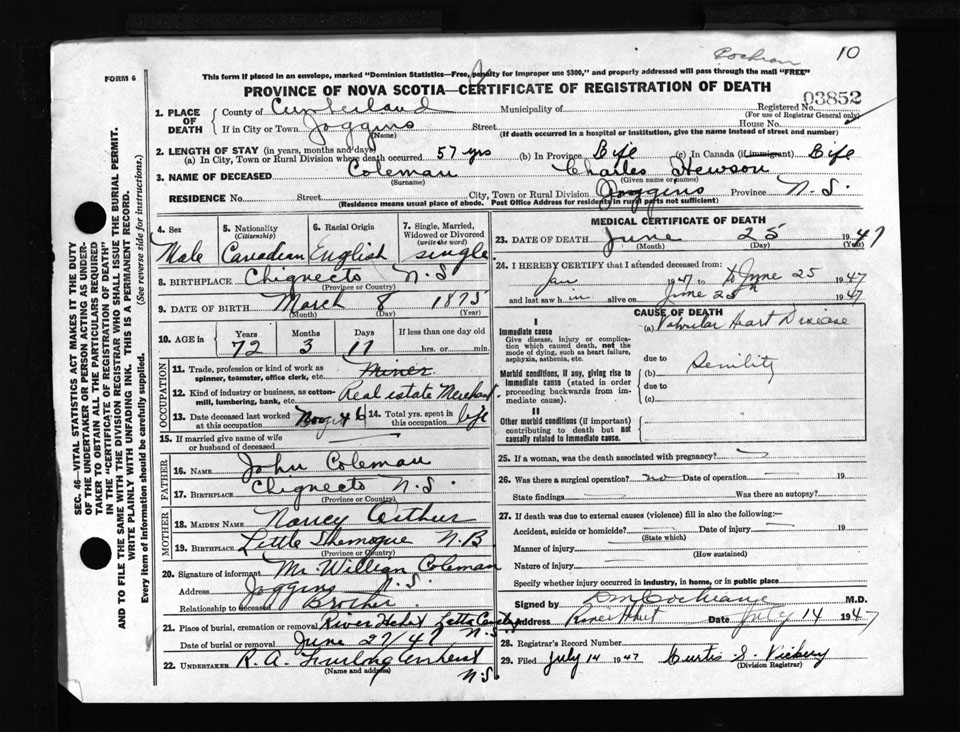 Cochran 10
FORM 6
This form if placed in an envelope, marked "Dominion Statistics—Free, penalty for improper use $300," and properly addressed will pass through the mail "FREE"
PROVINCE OF NOVA SCOTIA—CERTIFICATE OF REGISTRATION OF DEATH
SEC. 46—VITAL STATISTICS ACT MAKES IT THE DUTY
OF THE UNDERTAKER OR PERSON ACTING AS UNDER-
TAKER TO OBTAIN ALL THE PARTICULARS REQUIRED
IN THE "CERTIFICATE OF REGISTRATION OF DEATH"
AND TO FILE THE SAME WITH THE DIVISION REGISTRAR WHO SHALL ISSUE THE BURIAL PERMIT.
WRITE PLAINLY WITH UNFADING INK. THIS IS A PERMANENT RECORD.
Every item of information should be carefully supplied. (See reverse side for instructions.)
1. PLACE OF DEATH County of Cumberland Municipality of Registered No. 03852
(For use of Registrar General only)
If in City or Town Joggins Street House No.
(Name) (If death occurred in a hospital or institution, give the name instead of street and number)
2. LENGTH OF STAY (in years, months and days)
(a) In City, Town or Rural Division where death occurred 57 yrs (b) In Province Life (c) In Canada (if immigrant) Life
3. NAME OF DECEASED Coleman Charles Hewson
(Surname) (Given name or names)
RESIDENCE No. Street City, Town or Rural Division Joggins Province N.S.
(Residence means usual place of abode. Post Office Address for residents in rural parts not sufficient)
4. Sex Male
5. Nationality (Citizenship) Canadian
6. Racial Origin English
7. Single, Married, Widowed or Divorced (write the word) single
8. BIRTHPLACE Chignecto N.S.
(Province or Country)
9. DATE OF BIRTH March 8 1875
(Month) (Day) (Year)
10. AGE in Years 72 Months 3 Days 17 If less than one day old hrs. or min.
OCCUPATION
11. Trade, profession or kind of work as spinner, teamster, office clerk, etc. Miner
12. Kind of industry or business, as cotton-mill, lumbering, bank, etc. Real estate Merchant
13. Date deceased last worked at this occupation
14. Total yrs. spent in this occupation life
15. If married give name of wife or husband of deceased
FATHER
16. NAME John Coleman
17. BIRTHPLACE Chignecto N.S.
(Province or Country)
MOTHER
18. MAIDEN NAME Nancy Arthur
19. BIRTHPLACE Little Shemogue N.B
(Province or Country)
20. Signature of informant Mr. William Coleman
Address Joggins N.S.
Relationship to deceased Brother
21. Place of burial, cremation or removal River Hebert
Date of burial or removal June 27/47 N.S
22. UNDERTAKER R. A. Furlong Amherst
(Name and address) N.S.
MEDICAL CERTIFICATE OF DEATH
23. DATE OF DEATH June 25 1947
(Month) (Day) (Year)
24. I HEREBY CERTIFY that I attended deceased from:
Jan 1947 to June 25 1947
and last saw him alive on June 25th 1947
CAUSE OF DEATH
I
Immediate cause
Give disease, injury or complication which caused death, not the mode of dying, such as heart failure, asphyxia, asthenia, etc.
(a) Valvular Heart Disease
due to
Morbid conditions, if any, giving rise to immediate cause (stated in order proceeding backwards from immediate cause).
(b) Senility
due to
(c)
II
Other morbid conditions (if important) contributing to death but not causally related to immediate cause.
25. If a woman, was the death associated with pregnancy?
26. Was there a surgical operation? no Date of operation 19
State findings Was there an autopsy?
27. If death was due to external causes (violence) fill in also the following:
Accident, suicide or homicide? Date of injury 19
(State which)
Manner of injury
(How sustained)
Nature of injury
Specify whether injury occurred in industry, in home, or in public place
Signed by Cochrane M.D.
Address River Hebert Date July 14 1947
28. Registrar's Record Number
29. Filed July 14 1947 Curtis S. Vickery
(Division Registrar)